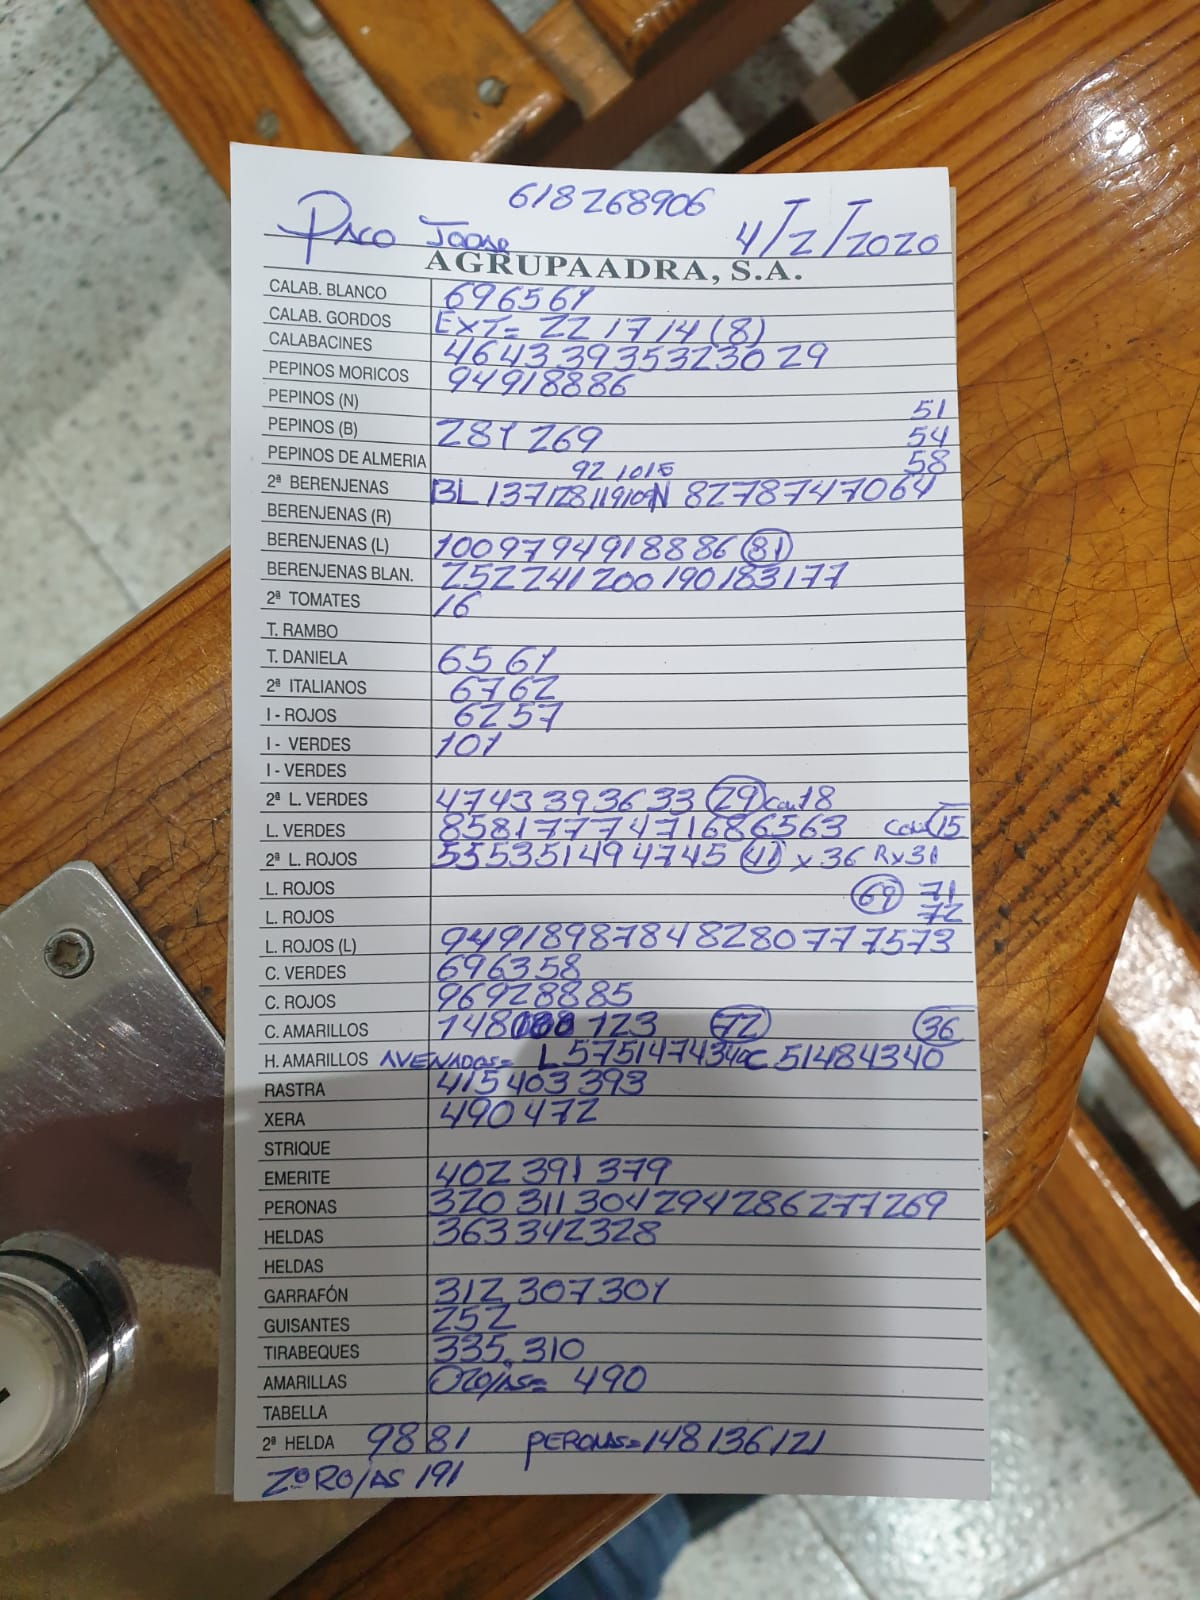 618268906
Paco Jodar 4/2/2020
AGRUPAADRA, S.A.
CALAB. BLANCO 69 65 61
CALAB. GORDOS EXT= 22 17 14 (8)
CALABACINES 46 43 39 35 32 30 29
PEPINOS MORICOS 94 91 88 86
PEPINOS (N) 51
PEPINOS (B) 281 269 54
PEPINOS DE ALMERIA 92 101 58
2ª BERENJENAS BL 137 128 119 109 N 82 78 74 70 64
BERENJENAS (R)
BERENJENAS (L) 100 97 94 91 88 86 (81)
BERENJENAS BLAN. 252 241 200 190 183 177
2ª TOMATES 16
T. RAMBO
T. DANIELA 65 61
2ª ITALIANOS 67 62
I - ROJOS 62 57
I - VERDES 101
I - VERDES
2ª L. VERDES 47 43 39 36 33 (29) 18
L. VERDES 85 81 77 74 71 68 65 63 (15)
2ª L. ROJOS 55 53 51 49 47 45 (41) x 36 Rx31
L. ROJOS (69) 71
L. ROJOS 72
L. ROJOS (L) 94 91 89 87 84 82 80 77 75 73
C. VERDES 69 63 58
C. ROJOS 96 92 88 85
C. AMARILLOS 148 123 (72) (36)
H. AMARILLOS AVENADOS= L 57 51 47 43 40 C 51 48 43 40
RASTRA 415 403 393
XERA 490 472
STRIQUE
EMERITE 402 391 379
PERONAS 320 311 304 294 286 277 269
HELDAS 363 342 328
HELDAS
GARRAFÓN 312 307 301
GUISANTES 252
TIRABEQUES 335. 310
AMARILLAS ROJAS= 490
TABELLA
2ª HELDA 98 81 PERONAS= 148 136 121
2ª ROJAS 191